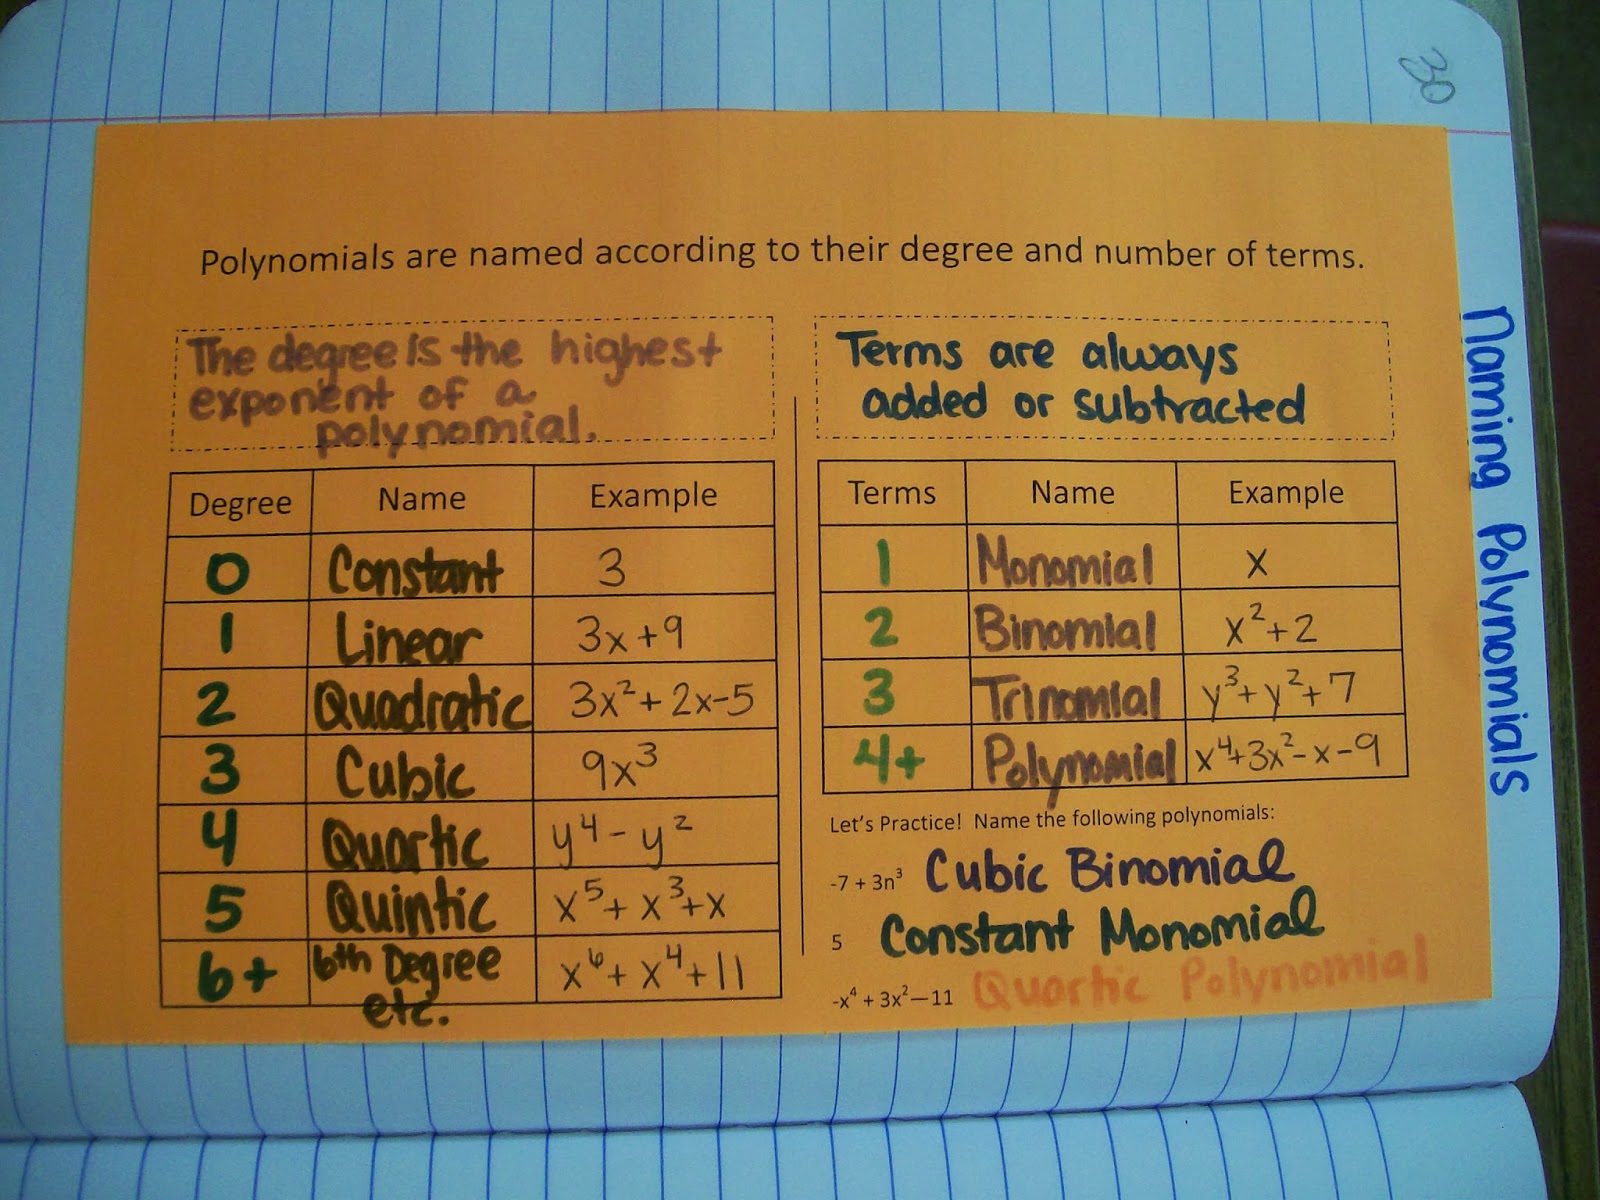 30
Naming Polynomials
Polynomials are named according to their degree and number of terms.
The degree is the highest
exponent of a
polynomial.
Degree Name Example
0 Constant 3
1 Linear 3x+9
2 Quadratic 3x²+2x-5
3 Cubic 9x³
4 Quartic y⁴-y²
5 Quintic x⁵+x³+x
6+ 6th Degree x⁶+x⁴+11
etc.
Terms are always
added or subtracted
Terms Name Example
1 Monomial x
2 Binomial x²+2
3 Trinomial y³+y²+7
4+ Polynomial x⁴+3x²-x-9
Let's Practice! Name the following polynomials:
-7 + 3n³ Cubic Binomial
5 Constant Monomial
-x⁴ + 3x²—11 Quartic Polynomial